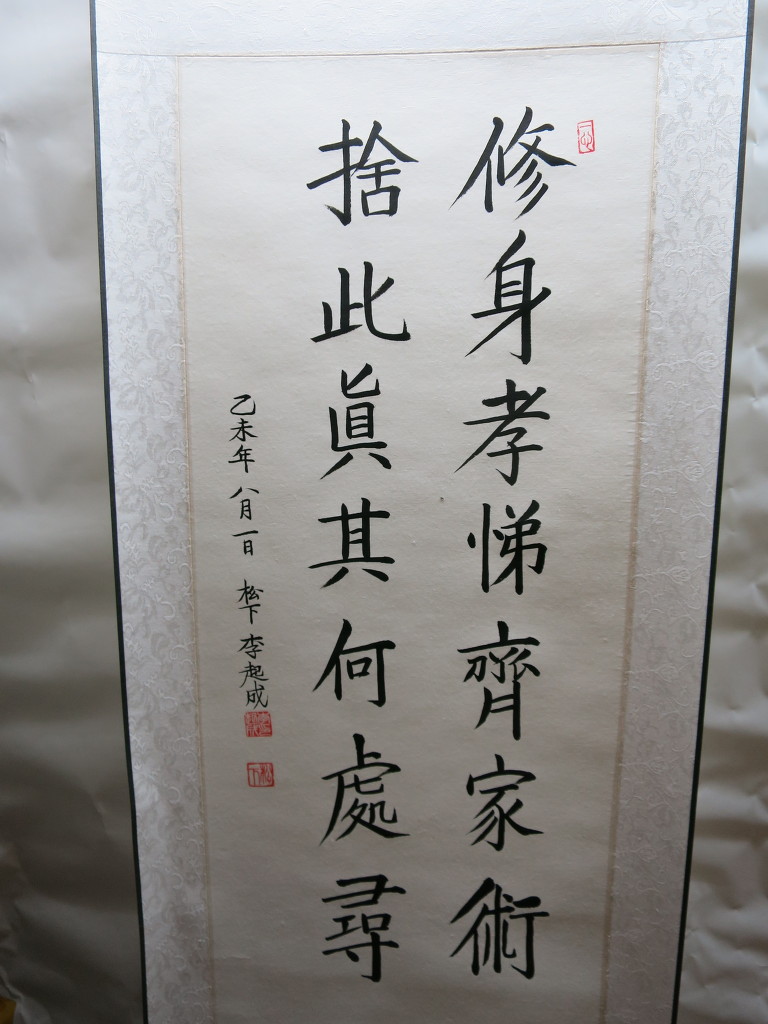 修身孝悌齊家術
捨此眞其何處尋
乙未年 八月一日 松下 李起成
松下